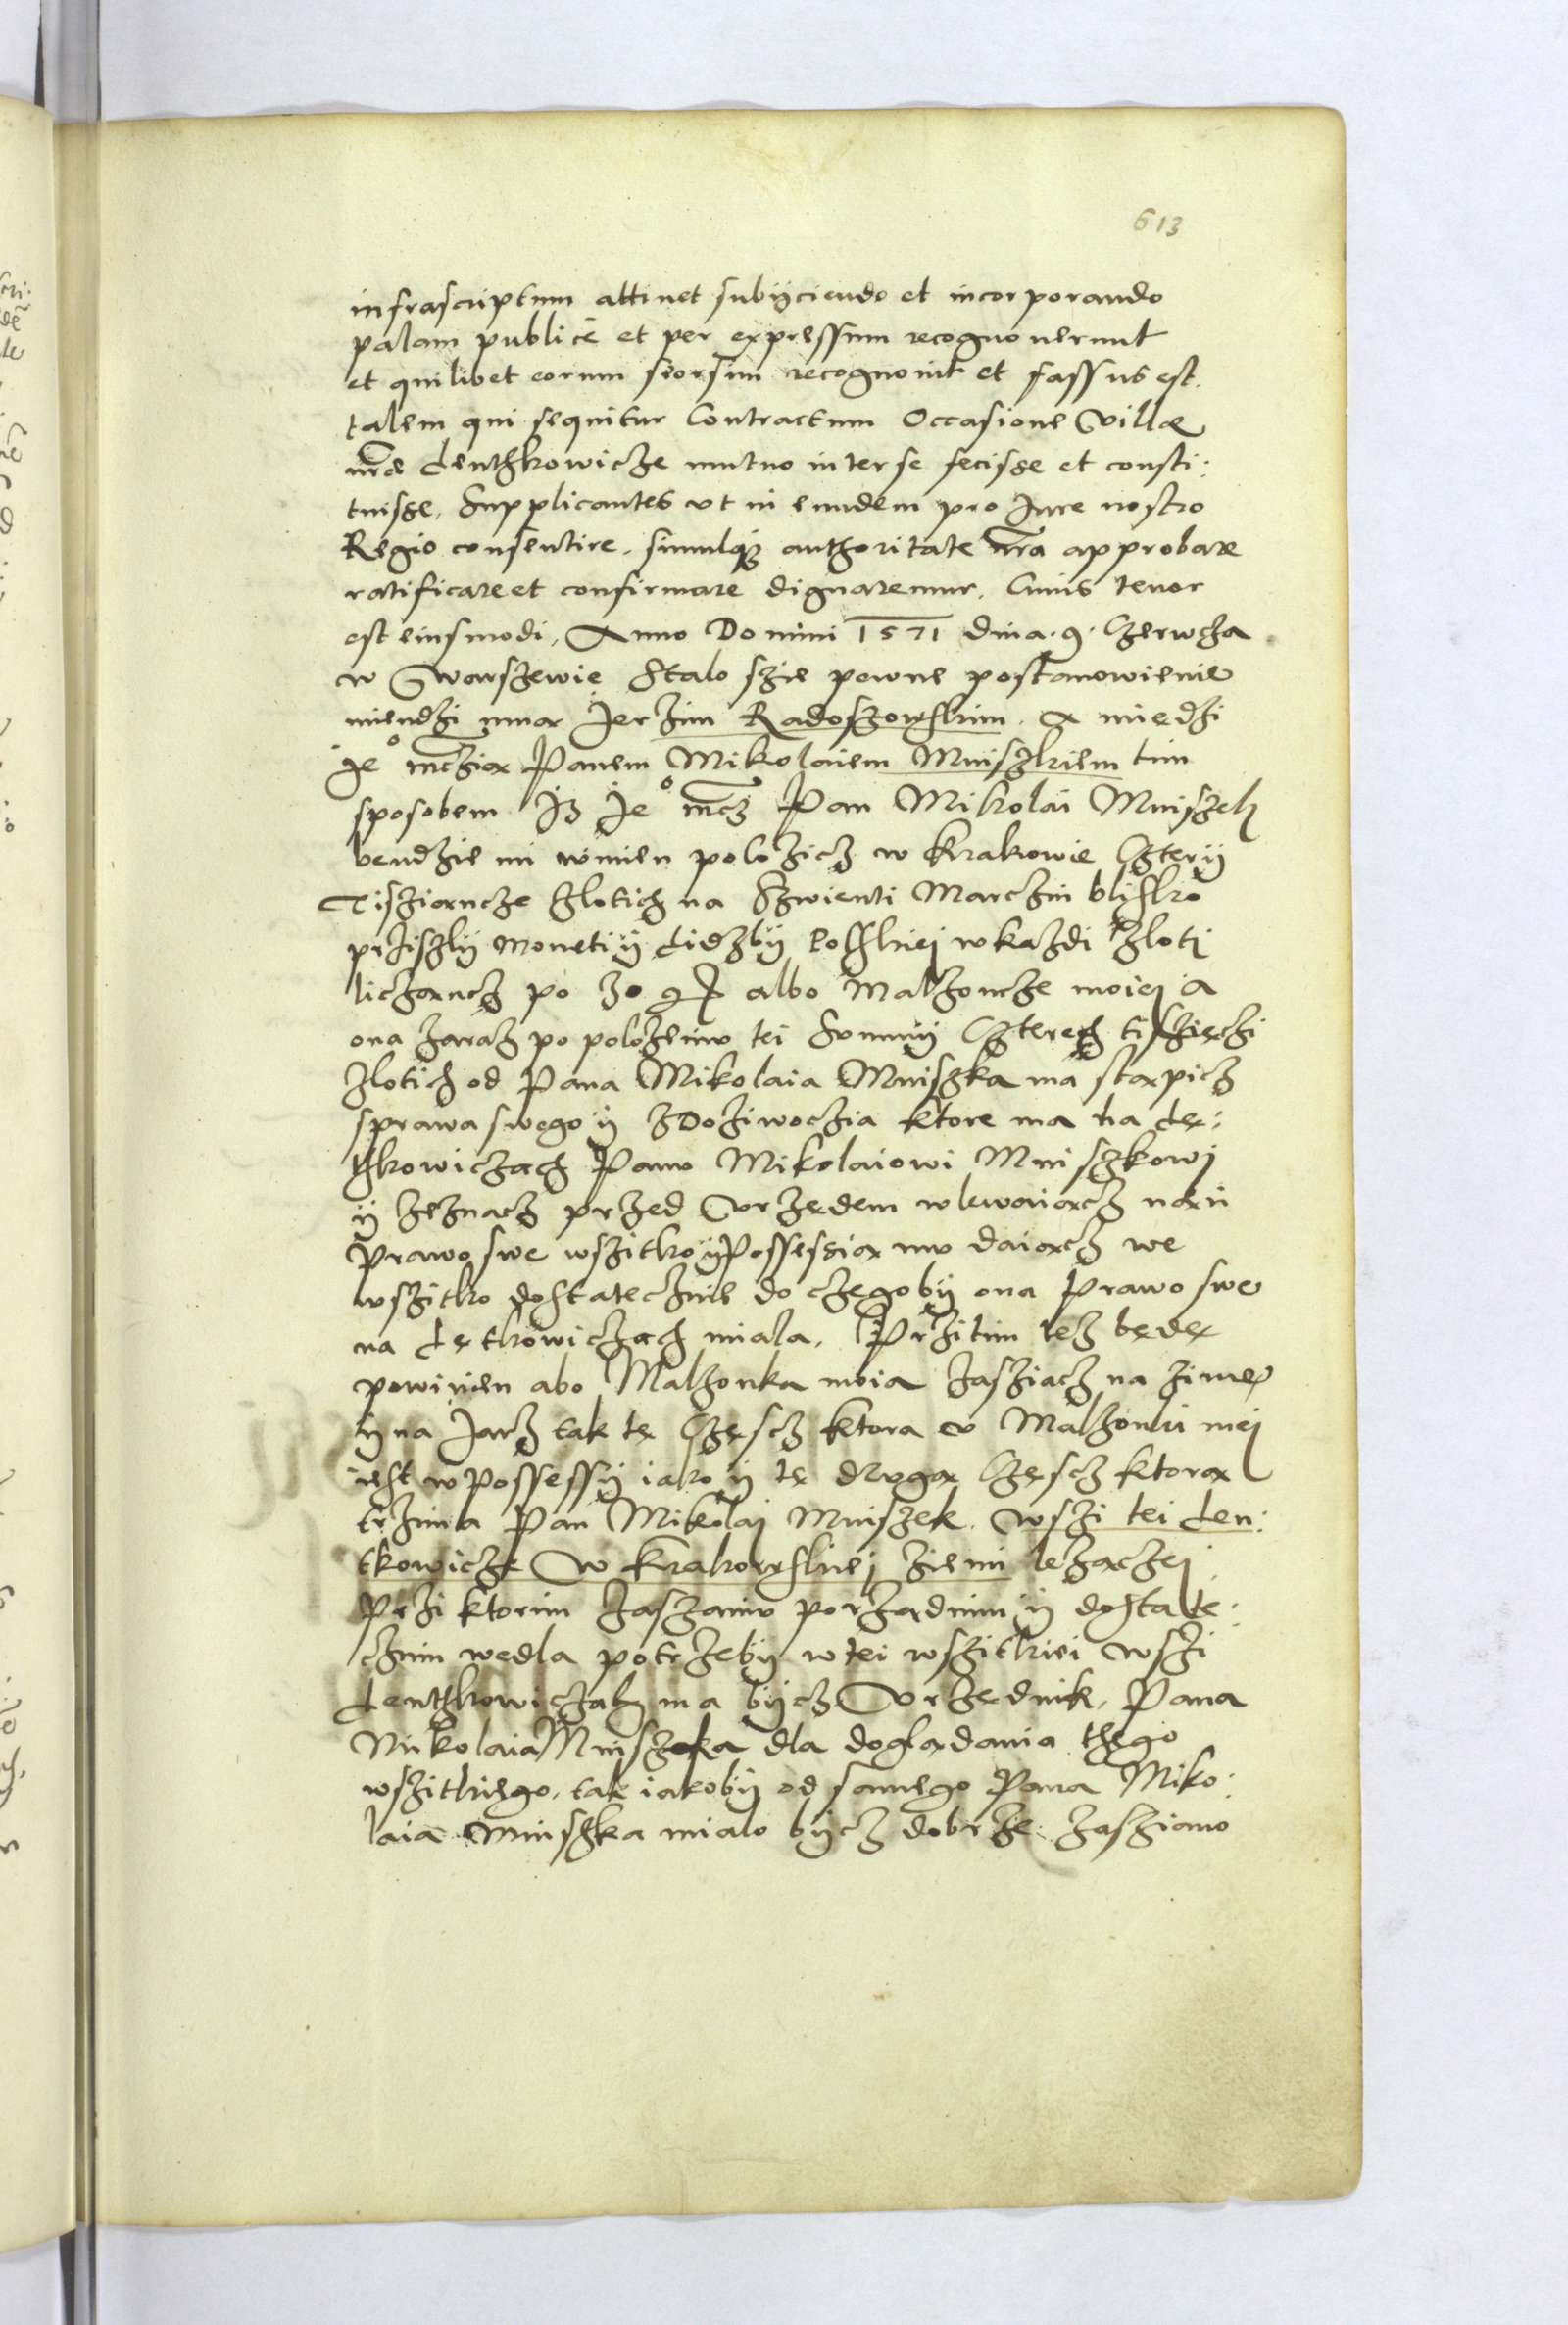 613
infrascriptum attinet subÿciendo et incorporando
palam publicè et per expressum recognouerunt
et quilibet eorum seorsim recognouit et fassus est.
talem qui sequitur Contractum Occasione Villæ
nr̃æ Lenthkowicze mutuo inter se fecisse et consti:
tuisse, Supplicantes vt in eundem pro Iure nostro
Regio consentire, simulq3 authoritate nr̃a approbare
ratificare et confirmare dignaremur. Cuius tenor
est eiusmodi, Anno Domini 1571 dnia .9. Czerwcza
w Warszewie Stalo szie pewne postanowienie
miendzi mną Jerzim Radoszowskim. A miedzi
Je⁰ mczią Panem Mikolaiem Mniszkiem tim
sposobem Iz Je⁰ mcz Pan Mikolai Mniszek
bendzie mi winien polozicz w Krakowie Czterÿ
Tisziącze Zlotich na Szwienti Marczin blisko
prziszlÿ Monetiÿ Lidzbÿ Polskiej w kazdi Zloti
licząncz po 30 gr albo Malzoncze moiej A
ona zaraz po polozeniu tei Summÿ Cztereh tiszięczi
Zlotich od Pana Mikolaia Mniszka ma stąpicz
sprawa swego ÿ z Doziwoczia ktore ma na Lę:
tkowiczach Panu Mikolaiowi Mniszkowi
ÿ zeznacz przed Vrzędem wlewaiącz nań
Prawo swe wszitko ÿ Possessią mu daiącz we
wszitko dostatecznie do czegobÿ ona Prawo swe
na Lętkowiczach miala. Przitim tez będę
powinien abo Malzonka moia zasziacz na zimę
ÿ na Jarz tak tę Częscz ktora v Malzonki mej
iest w Possessÿ iako ÿ tę drugą Częscz ktorą
trzima Pan Mikolaj Mniszek. wszi tei Len:
tkowicze W Krakowskiej ziemi lezączej
Przi ktorim zasianiu porządnim ÿ dostate:
cznim wedla potrzebÿ w tei wszitkiei wszi
Lenthkowiczach ma bÿcz Vrzędnik, Pana
Mikolaia Mniszka dla doglądania thego
wszitkiego, tak iakobÿ od samego Pana Miko:
laia Mniszka mialo bÿcz dobrze zasziano